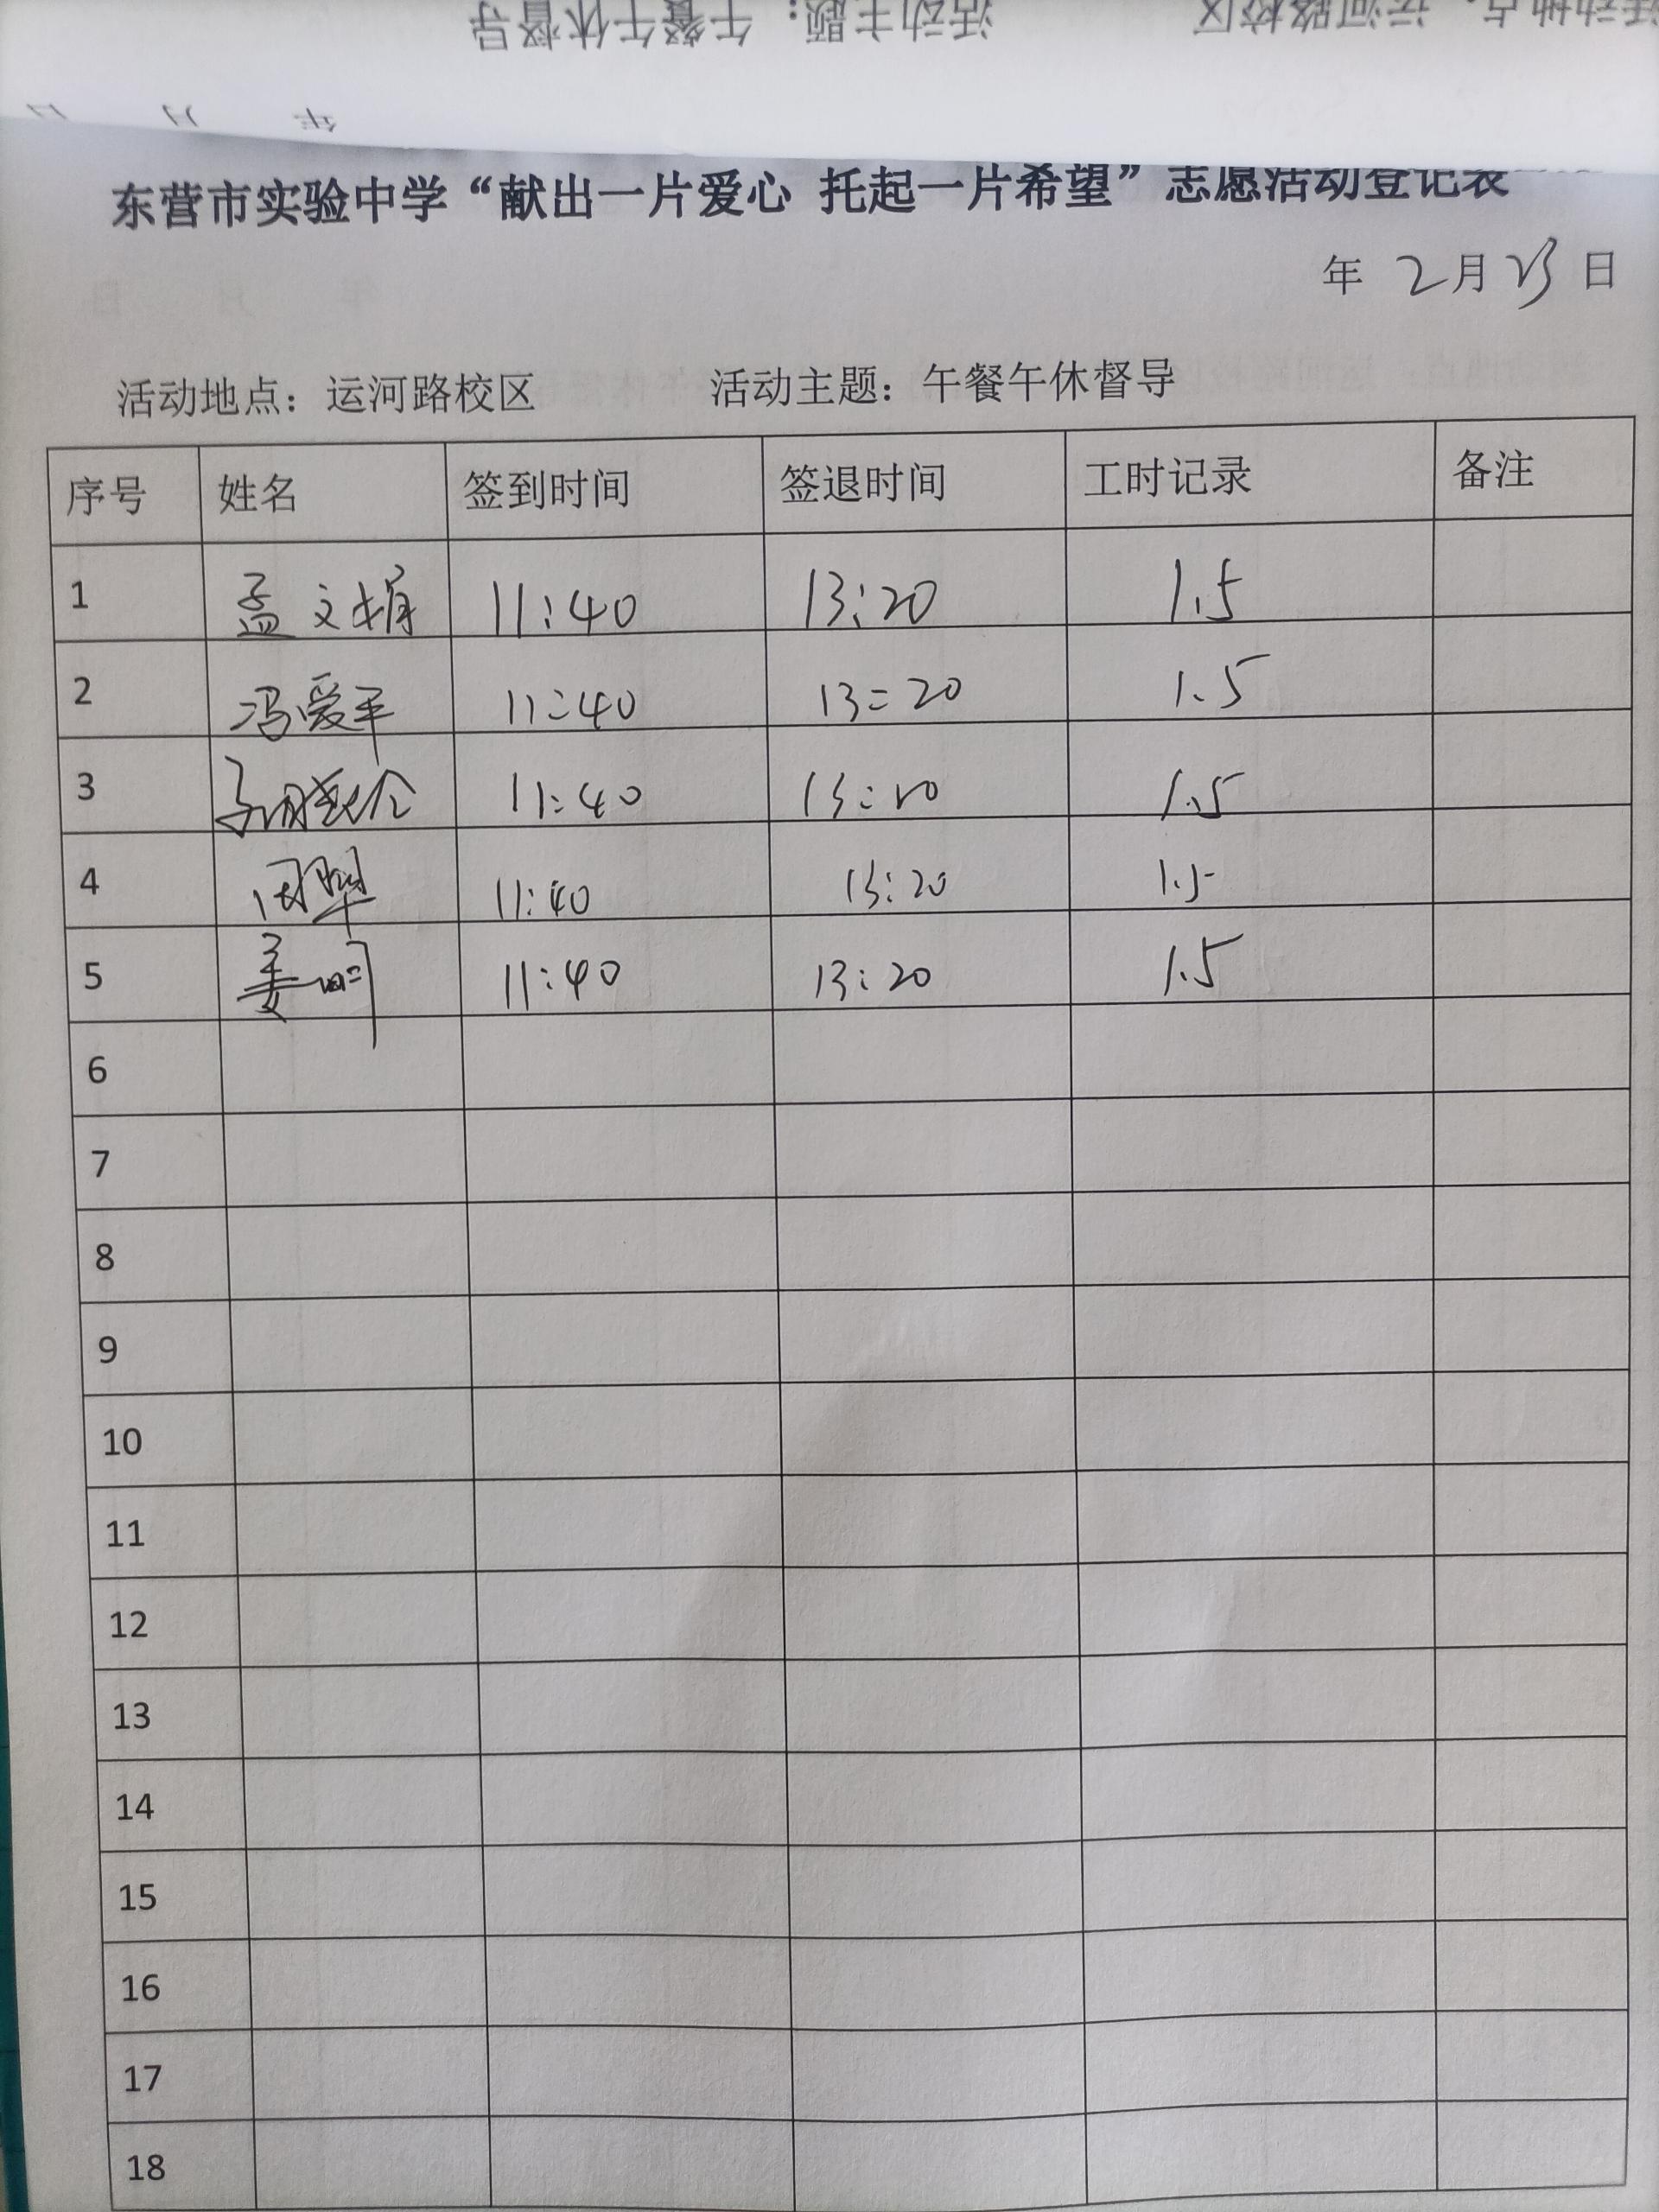 活动地点：运河路校区 活动主题：午餐午休督导
年 月 日
东营市实验中学“献出一片爱心 托起一片希望”志愿活动登记表
年 2月23日
活动地点：运河路校区 活动主题：午餐午休督导
序号 姓名 签到时间 签退时间 工时记录 备注
1 孟文娟 11:40 13:20 1.5
2 冯爱平 11:40 13:20 1.5
3 11:40 13:20 1.5
4 11:40 13:20 1.5
5 姜 11:40 13:20 1.5
6
7
8
9
10
11
12
13
14
15
16
17
18